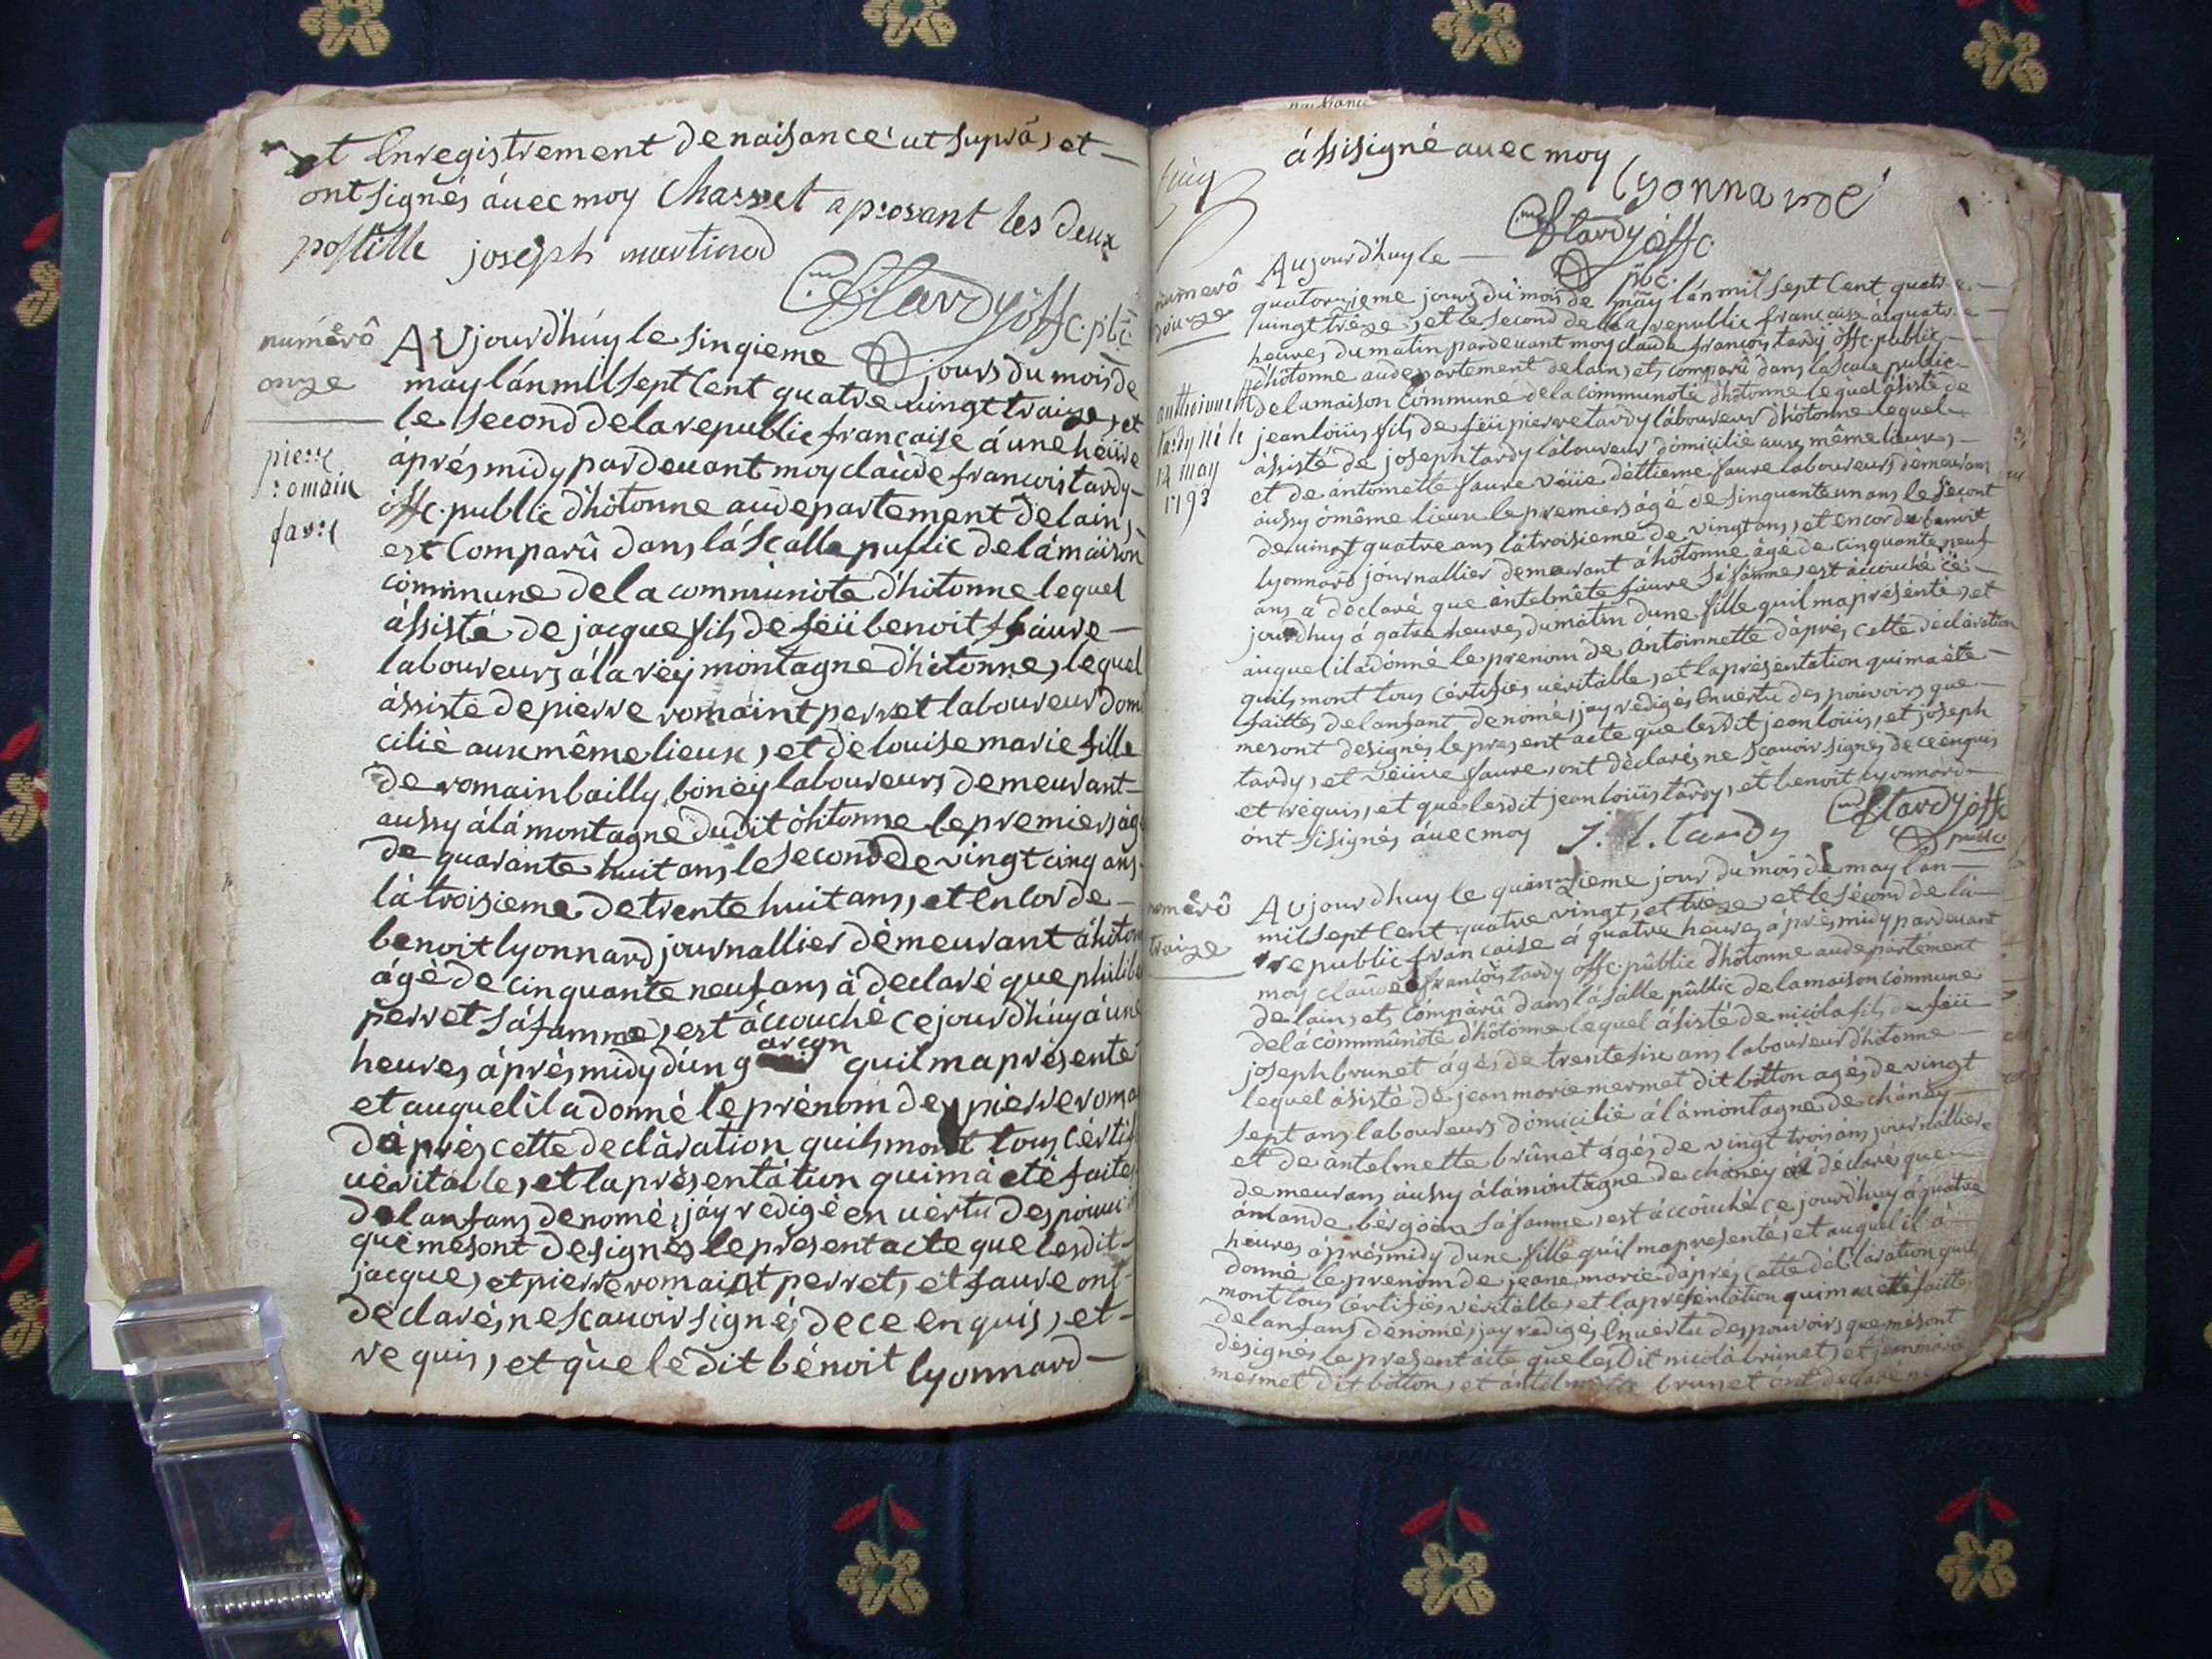 et Enregistrement de naisance ut supra, et
ont signés avec moy Chasset aprosant les deux
postille joseph martinod
C.f. tardy off.c. pbc
numérô
onze
pierre
romain
favre
AUjourd'húy le sinqieme jours du mois de
may lán mil sept Cent quatre vingt traize, et
le second de la republic francaise á une heüre
áprés midy pardevant moy claûde francois tardy
off.c. public d'hôtonne au departement de lain,
est Comparû dans lá Scalle public de lá maison
cómmune de la commúnote d'hôtonne lequel
ássisté de jacque fils de féü benoit faure
laboureurs á la véÿ montagne d'hôtonne, lequel
ássisté de pierre romaint perret laboureur domi
cilié aux même lieux, et de louise marie fille
de romain bailly bonéÿ laboureurs demeurant
aussy á lá montagne dudit ôhtonne le premiers ágé
de quarante huit ans le second de vingt cinq ans
lá troisieme de trente huit ans, et Encor de
benoit lyonnard journallier démeurant á hôtonne
ágé de cinquante neuf ans á declaré que philib
perret sá famme, est áccouché ce jourd'húy á une
heures áprés midy dún garçon quil ma présenté
et auquel il a donné le prénom de pierre roma
dáprés cette declàration quils mont tous Cértif
uéritable, et la présentátion qui má été faite
de lanfans denomé, jáy rédigé en uértu des pouuoi
que mesont designés le present acte que lesdit
jacque, et pierre romaint perret, et faure ont
déclaré, ne scauoir signé, de ce enquis, et
requis, et que le dit bénoit lyonnard
ássisigné auec moy lyonnard
C.f. tardy off.c.
pbc.
numerô
douze
anthoinnette
tardy né le
14 may
1793
Aujourd'huy le
quatorzieme jours du mois de may lán mil sept Cent quatre
uingt tréze, et le second de la republic francaise á quatre
heures du matin pardeuant moy claude francois tardy off.c. public
d'hôtonne au departement de lain, est comparû dans la scale public
de la maison cómmune de la communoté d'hôtonne lequel ásisté de
jean loüis fils de féü pierre tardy láboureur d'hôtonne lequel
ássisté de joseph tardy láboureur domicilié aux même lieux,
et de ántoinette faure véüe déttieme faure laboureurs demeurans
aussy ô même lieux le premiers ágé de sinquante un ans le second
de uingt quatre ans lá troisieme de vingt ans, et encor de benoit
lyonnard journallier demeurant á hôtonne ágé de cinquante neuf
ans á declaré que ántelméte faure sá famme, est áccouché ce
jourdhuy á qatre heures du mátin dune fille quil ma présenté, et
auquel il a donné le prenom de Antoinnette dáprés cette déclàration
quils mont tous cértifiés uéritable, et la présentation qui ma été
faittes de lanfant denomé, jay rédigés En uertu des pouuoirs que
mesont designés le present acte que lesdit jean loüis, et joseph
tardy, et véüe faure, ont déclaré, ne scauoir signés de ce enquis
et réquis, et que lesdit jean loüis tardy, et benoit lyonnard
ónt sisignés áuec moy J. l. tardy C.f. tardy off.c.
public
numérô
traize
AUjourdhuy le quinzieme jour du mois de may lan
mil sept Cent quatre vingt, et tréze, et le sécond de lá
republic francaise á quatre heures áprés midy pardeuant
moy claude francois tardy off.c. pûblic d'hôtonne au departément
de lain, est Comparû dans lá sálle pûblic de la maison cómmune
de lá commûnoté d'hôtonne lequel ásisté de nicola fils de féü
joseph brunet ágés de trente six ans laboüreur d'hôtonne
lequel ásisté de jean marie mermet dit bôtton agés de vingt
sept ans laboureurs domicilié á lá montagne de chánéÿ
et de ántelmette brûnet ágés de vingt trois áns journalliere
demeurans áussy á lá montagne de chánéÿ á déclaré que
sá famme, est áccoûché ce jourdhuy á quatre
heures áprés midy dune fille quil ma presenté, et auquel il á
donné le prenom de jeane marie dáprés cette déclaration quils
mont tous cértifiés véritable, et la présentation qui ma été faitte
de lanfans dénomé, jay rédigés En uértu des pouuoirs que mésont
désignés le present ácte que lesdit nicolá brunet, et jean marie
mermet dit botton, et ántelmette brunet ont déclaré ne